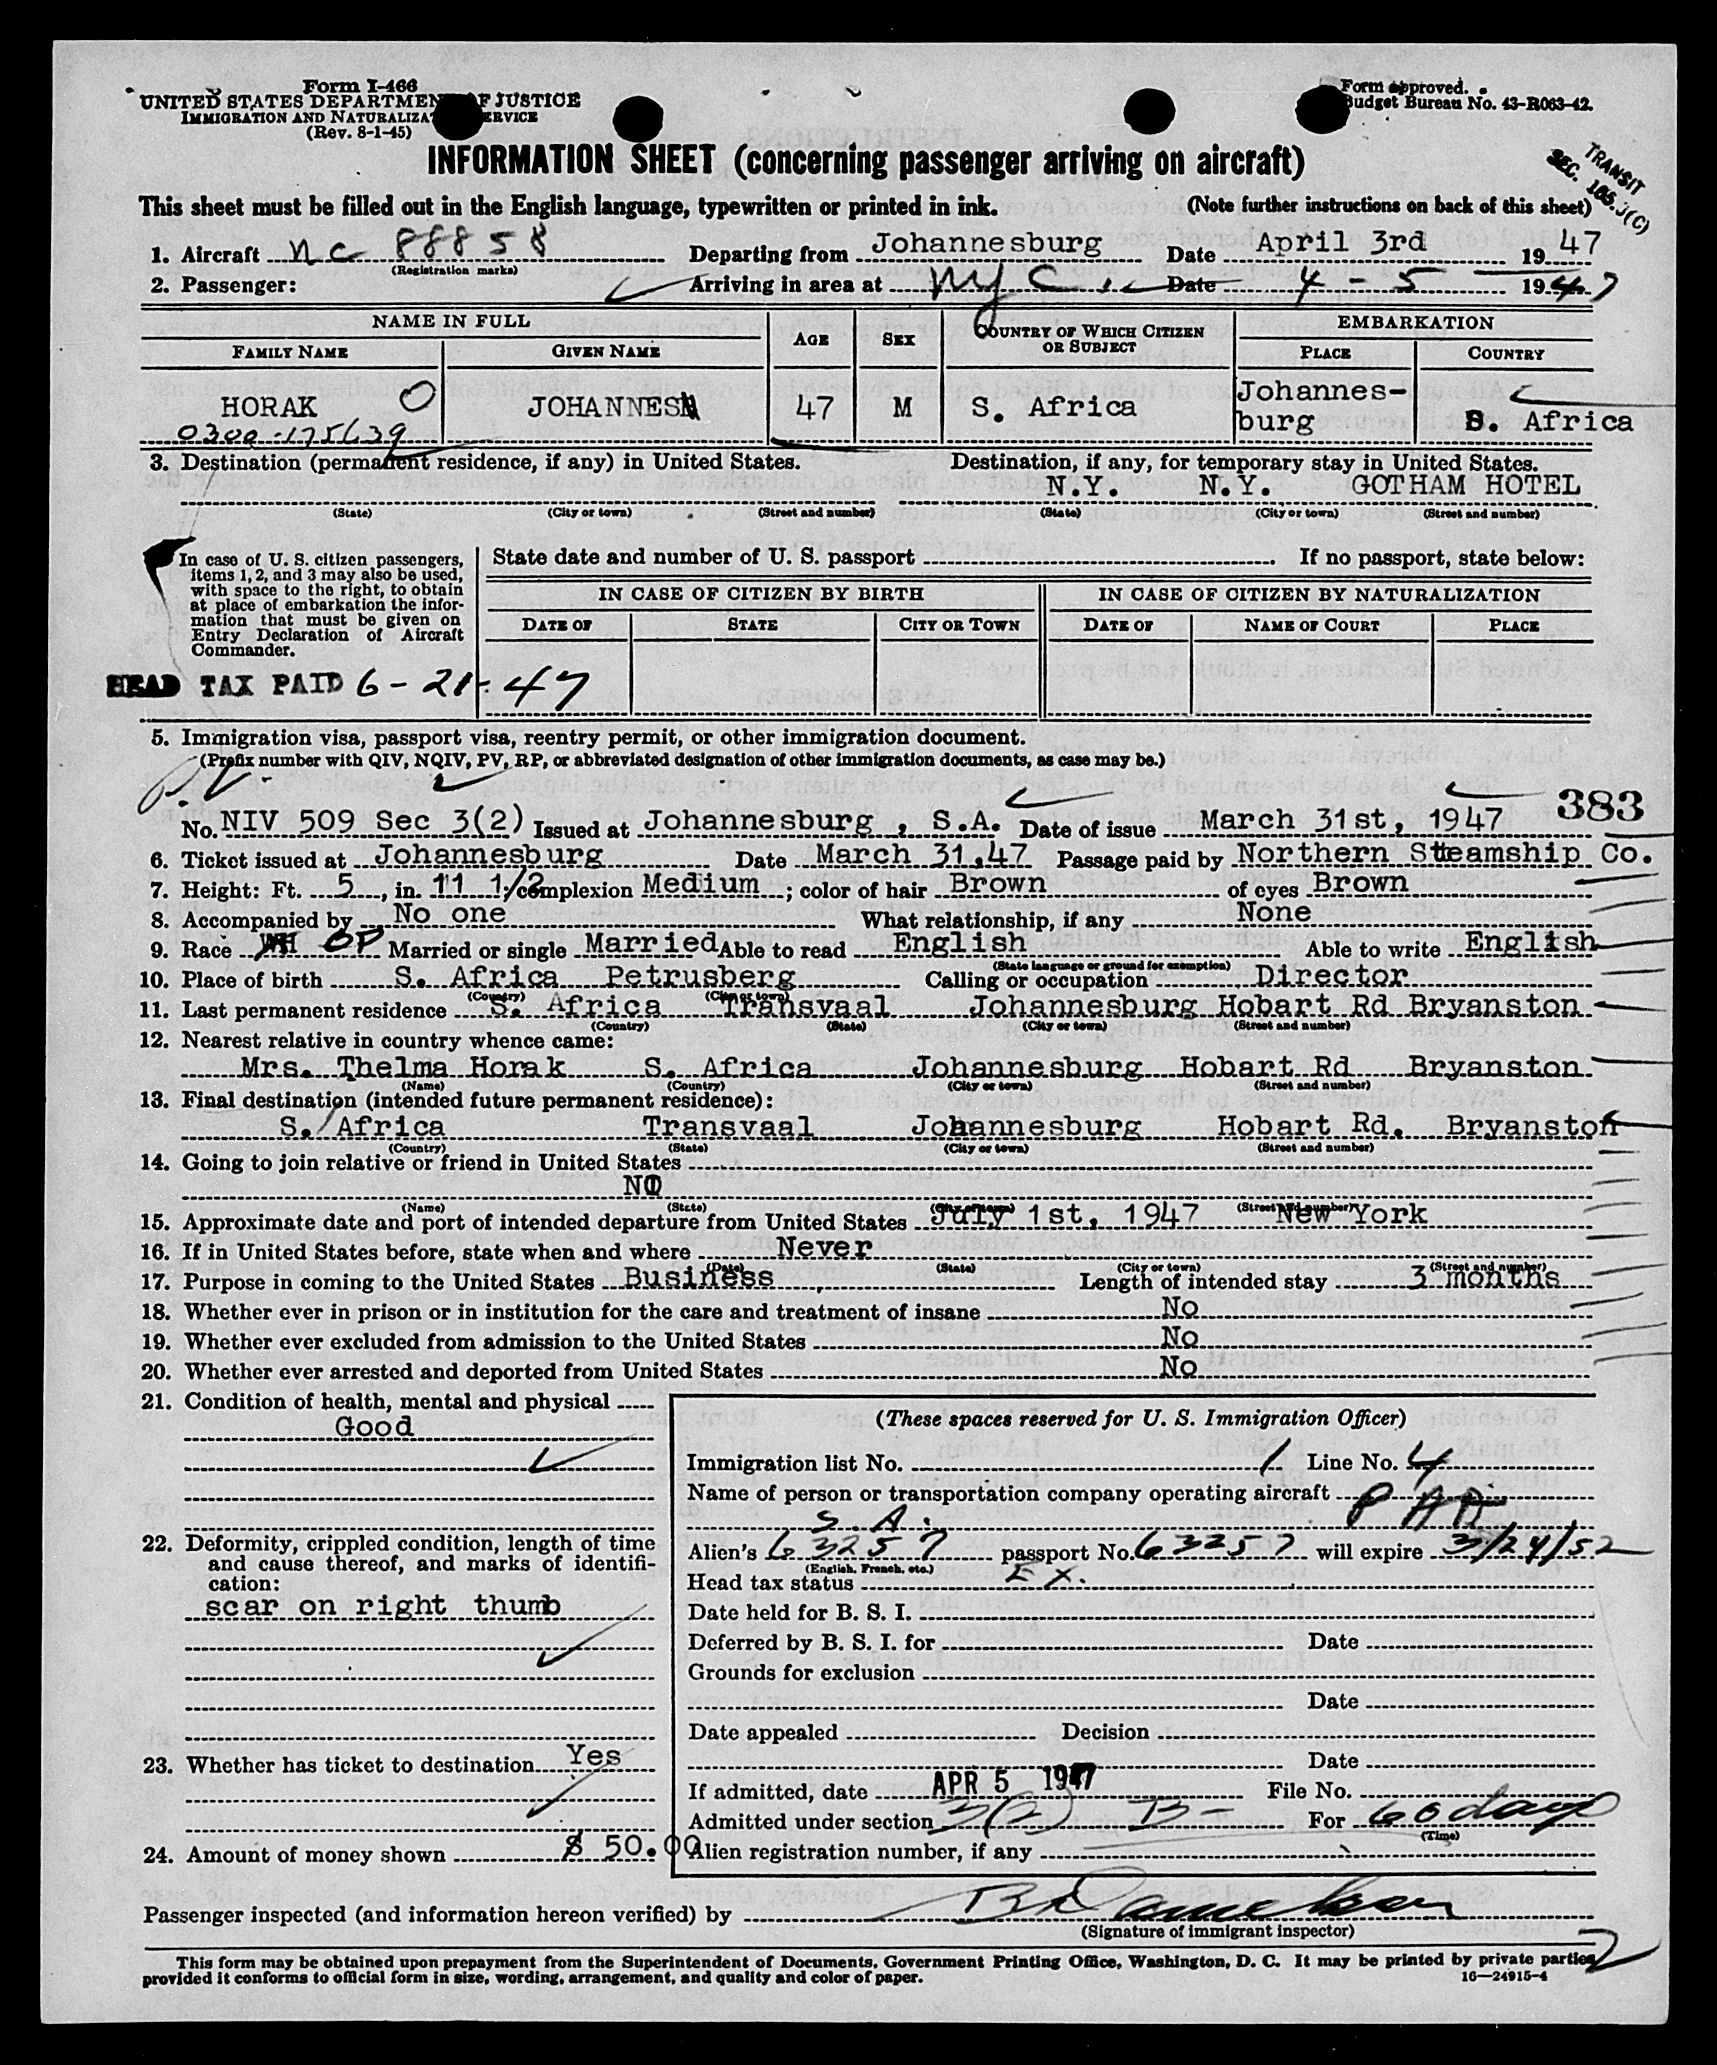 Form I-466
UNITED STATES DEPARTMENT OF JUSTICE
IMMIGRATION AND NATURALIZATION SERVICE
(Rev. 8-1-45)
Form approved.
Budget Bureau No. 43-R063-42.
INFORMATION SHEET (concerning passenger arriving on aircraft)
TRANSIT
SEC.
This sheet must be filled out in the English language, typewritten or printed in ink. (Note further instructions on back of this sheet)
1. Aircraft NC 88858 Departing from Johannesburg Date April 3rd 1947
(Registration marks)
2. Passenger: Arriving in area at NYC. Date 4 - 5 1947
NAME IN FULL AGE SEX COUNTRY OF WHICH CITIZEN OR SUBJECT EMBARKATION
FAMILY NAME GIVEN NAME PLACE COUNTRY
HORAK 0 JOHANNES 47 M S. Africa Johannes-
burg S. Africa
0300-175639
3. Destination (permanent residence, if any) in United States. Destination, if any, for temporary stay in United States.
N.Y. N.Y. GOTHAM HOTEL
(State) (City or town) (Street and number) (State) (City or town) (Street and number)
In case of U. S. citizen passengers,
items 1, 2, and 3 may also be used,
with space to the right, to obtain
at place of embarkation the infor-
mation that must be given on
Entry Declaration of Aircraft
Commander.
State date and number of U. S. passport If no passport, state below:
IN CASE OF CITIZEN BY BIRTH IN CASE OF CITIZEN BY NATURALIZATION
DATE OF STATE CITY OR TOWN DATE OF NAME OF COURT PLACE
HEAD TAX PAID 6 - 21 - 47
5. Immigration visa, passport visa, reentry permit, or other immigration document.
(Prefix number with QIV, NQIV, PV, RP, or abbreviated designation of other immigration documents, as case may be.)
P.V.
383
No. NIV 509 Sec 3(2) Issued at Johannesburg, S.A. Date of issue March 31st, 1947
6. Ticket issued at Johannesburg Date March 31.47 Passage paid by Northern Steamship Co.
7. Height: Ft. 5, in. 11 1/2 complexion Medium; color of hair Brown of eyes Brown
8. Accompanied by No one What relationship, if any None
9. Race OP Married or single Married Able to read English Able to write English
(State language or ground for exemption)
10. Place of birth S. Africa Petrusberg Calling or occupation Director
(Country) (City or town)
11. Last permanent residence S. Africa Transvaal Johannesburg Hobart Rd Bryanston
(Country) (State) (City or town) (Street and number)
12. Nearest relative in country whence came:
Mrs. Thelma Horak S. Africa Johannesburg Hobart Rd Bryanston
(Name) (Country) (City or town) (Street and number)
13. Final destination (intended future permanent residence):
S. Africa Transvaal Johannesburg Hobart Rd. Bryanston
(Country) (State) (City or town) (Street and number)
14. Going to join relative or friend in United States
NO
(Name) (State) (City or town) (Street and number)
15. Approximate date and port of intended departure from United States July 1st, 1947 New York
16. If in United States before, state when and where Never
(Date) (State) (City or town) (Street and number)
17. Purpose in coming to the United States Business Length of intended stay 3 months
18. Whether ever in prison or in institution for the care and treatment of insane No
19. Whether ever excluded from admission to the United States No
20. Whether ever arrested and deported from United States No
21. Condition of health, mental and physical
Good
22. Deformity, crippled condition, length of time
and cause thereof, and marks of identifi-
cation:
scar on right thumb
23. Whether has ticket to destination Yes
24. Amount of money shown $ 50.00
(These spaces reserved for U. S. Immigration Officer)
Immigration list No. 1 Line No. 4
Name of person or transportation company operating aircraft PAA
S.A.
Alien's 63257 passport No. 63257 will expire 3/24/52
(English, French, etc.)
Head tax status Ex.
Date held for B. S. I.
Deferred by B. S. I. for Date
Grounds for exclusion
Date
Date appealed Decision
Date
If admitted, date APR 5 1947 File No.
Admitted under section 3(2) B- For 60 days
(Time)
Alien registration number, if any
Passenger inspected (and information hereon verified) by
(Signature of immigrant inspector)
2
This form may be obtained upon prepayment from the Superintendent of Documents, Government Printing Office, Washington, D. C. It may be printed by private parties
provided it conforms to official form in size, wording, arrangement, and quality and color of paper.
16—24915-4